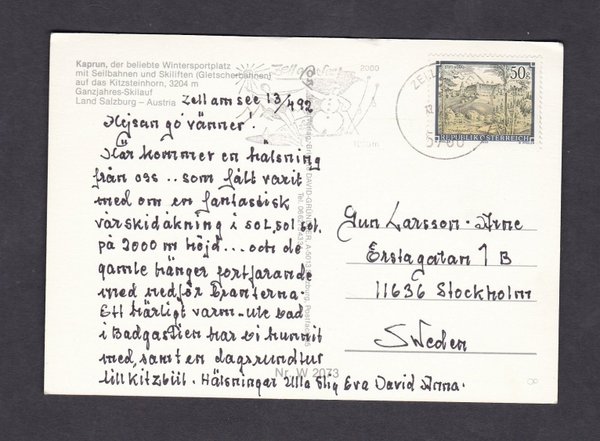 Kaprun, der beliebte Wintersportplatz
mit Seilbahnen und Skiliften (Gletscherbahnen)
auf das Kitzsteinhorn, 3204 m
Ganzjahres-Skilauf
Land Salzburg – Austria
Zell am see 13/4 92
Hejsan go' vänner!
Här kommer en hälsning
från oss .. som fått varit
med om en fantastisk
vårskidåkning i sol, sol sol.
på 2000 m höjd... och de
gamle hänger fortfarande
med nedför branterna.
Ett härligt varm-ute bad
i Badgastien har vi hunnit
med, samt en dagsrundtur
till Kitzbül. Hälsningar Ulla Stig Eva David Anna.
2000
ZELL
5700
50g
REPUBLIK ÖSTERREICH
Gun Larsson-Arne
Erstagatan 1 B
11636 Stockholm
Sweden
Nr. W 2073